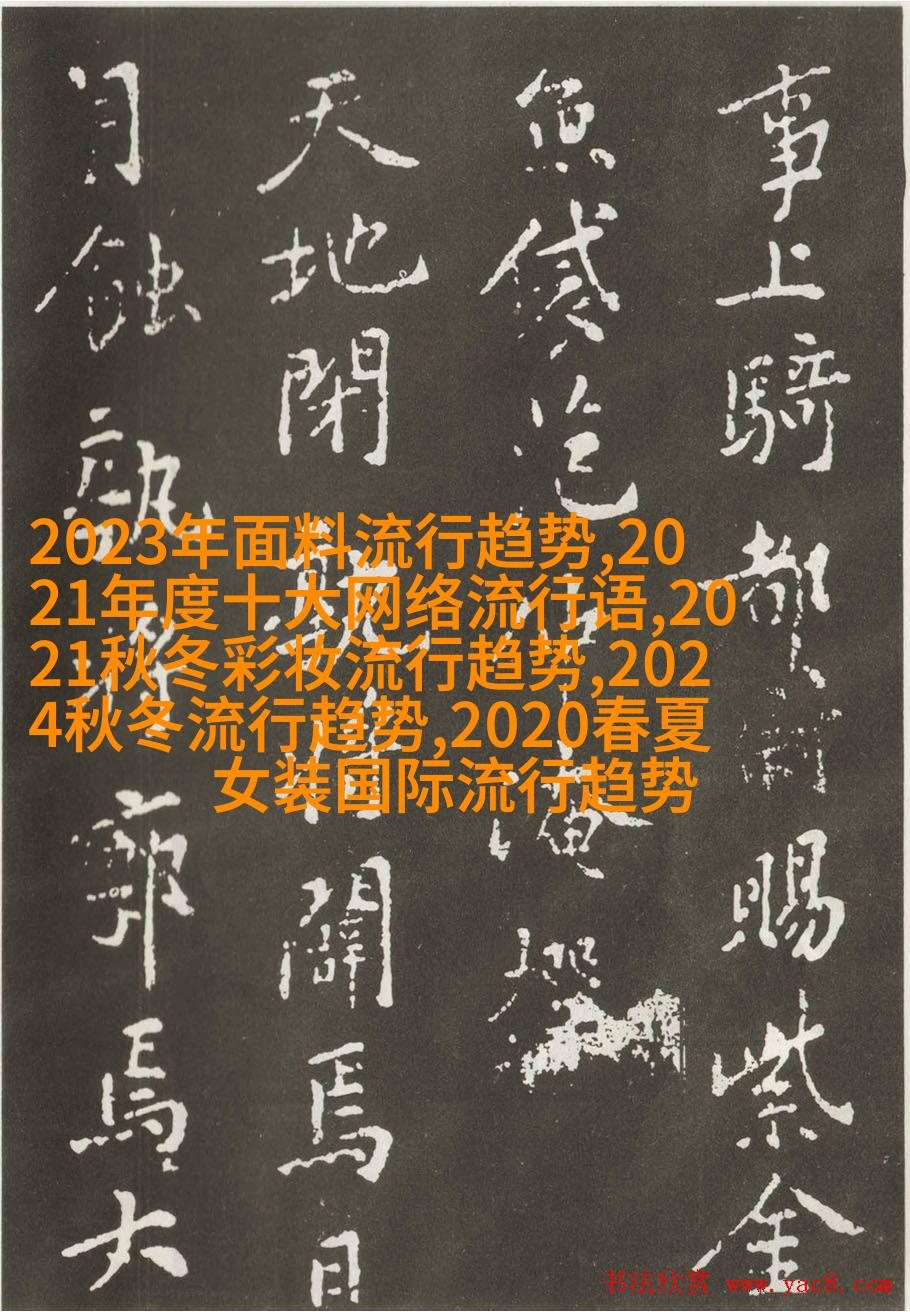 事上騎都賜紫金
魚袋范淹撰
天地閉孰將闢焉日
月蝕孰將廓焉大
2023年面料流行趋势,20
21年度十大网络流行语,20
21秋冬彩妆流行趋势,202
4秋冬流行趋势,2020春夏
女装国际流行趋势
书法欣赏 www.yac8.com